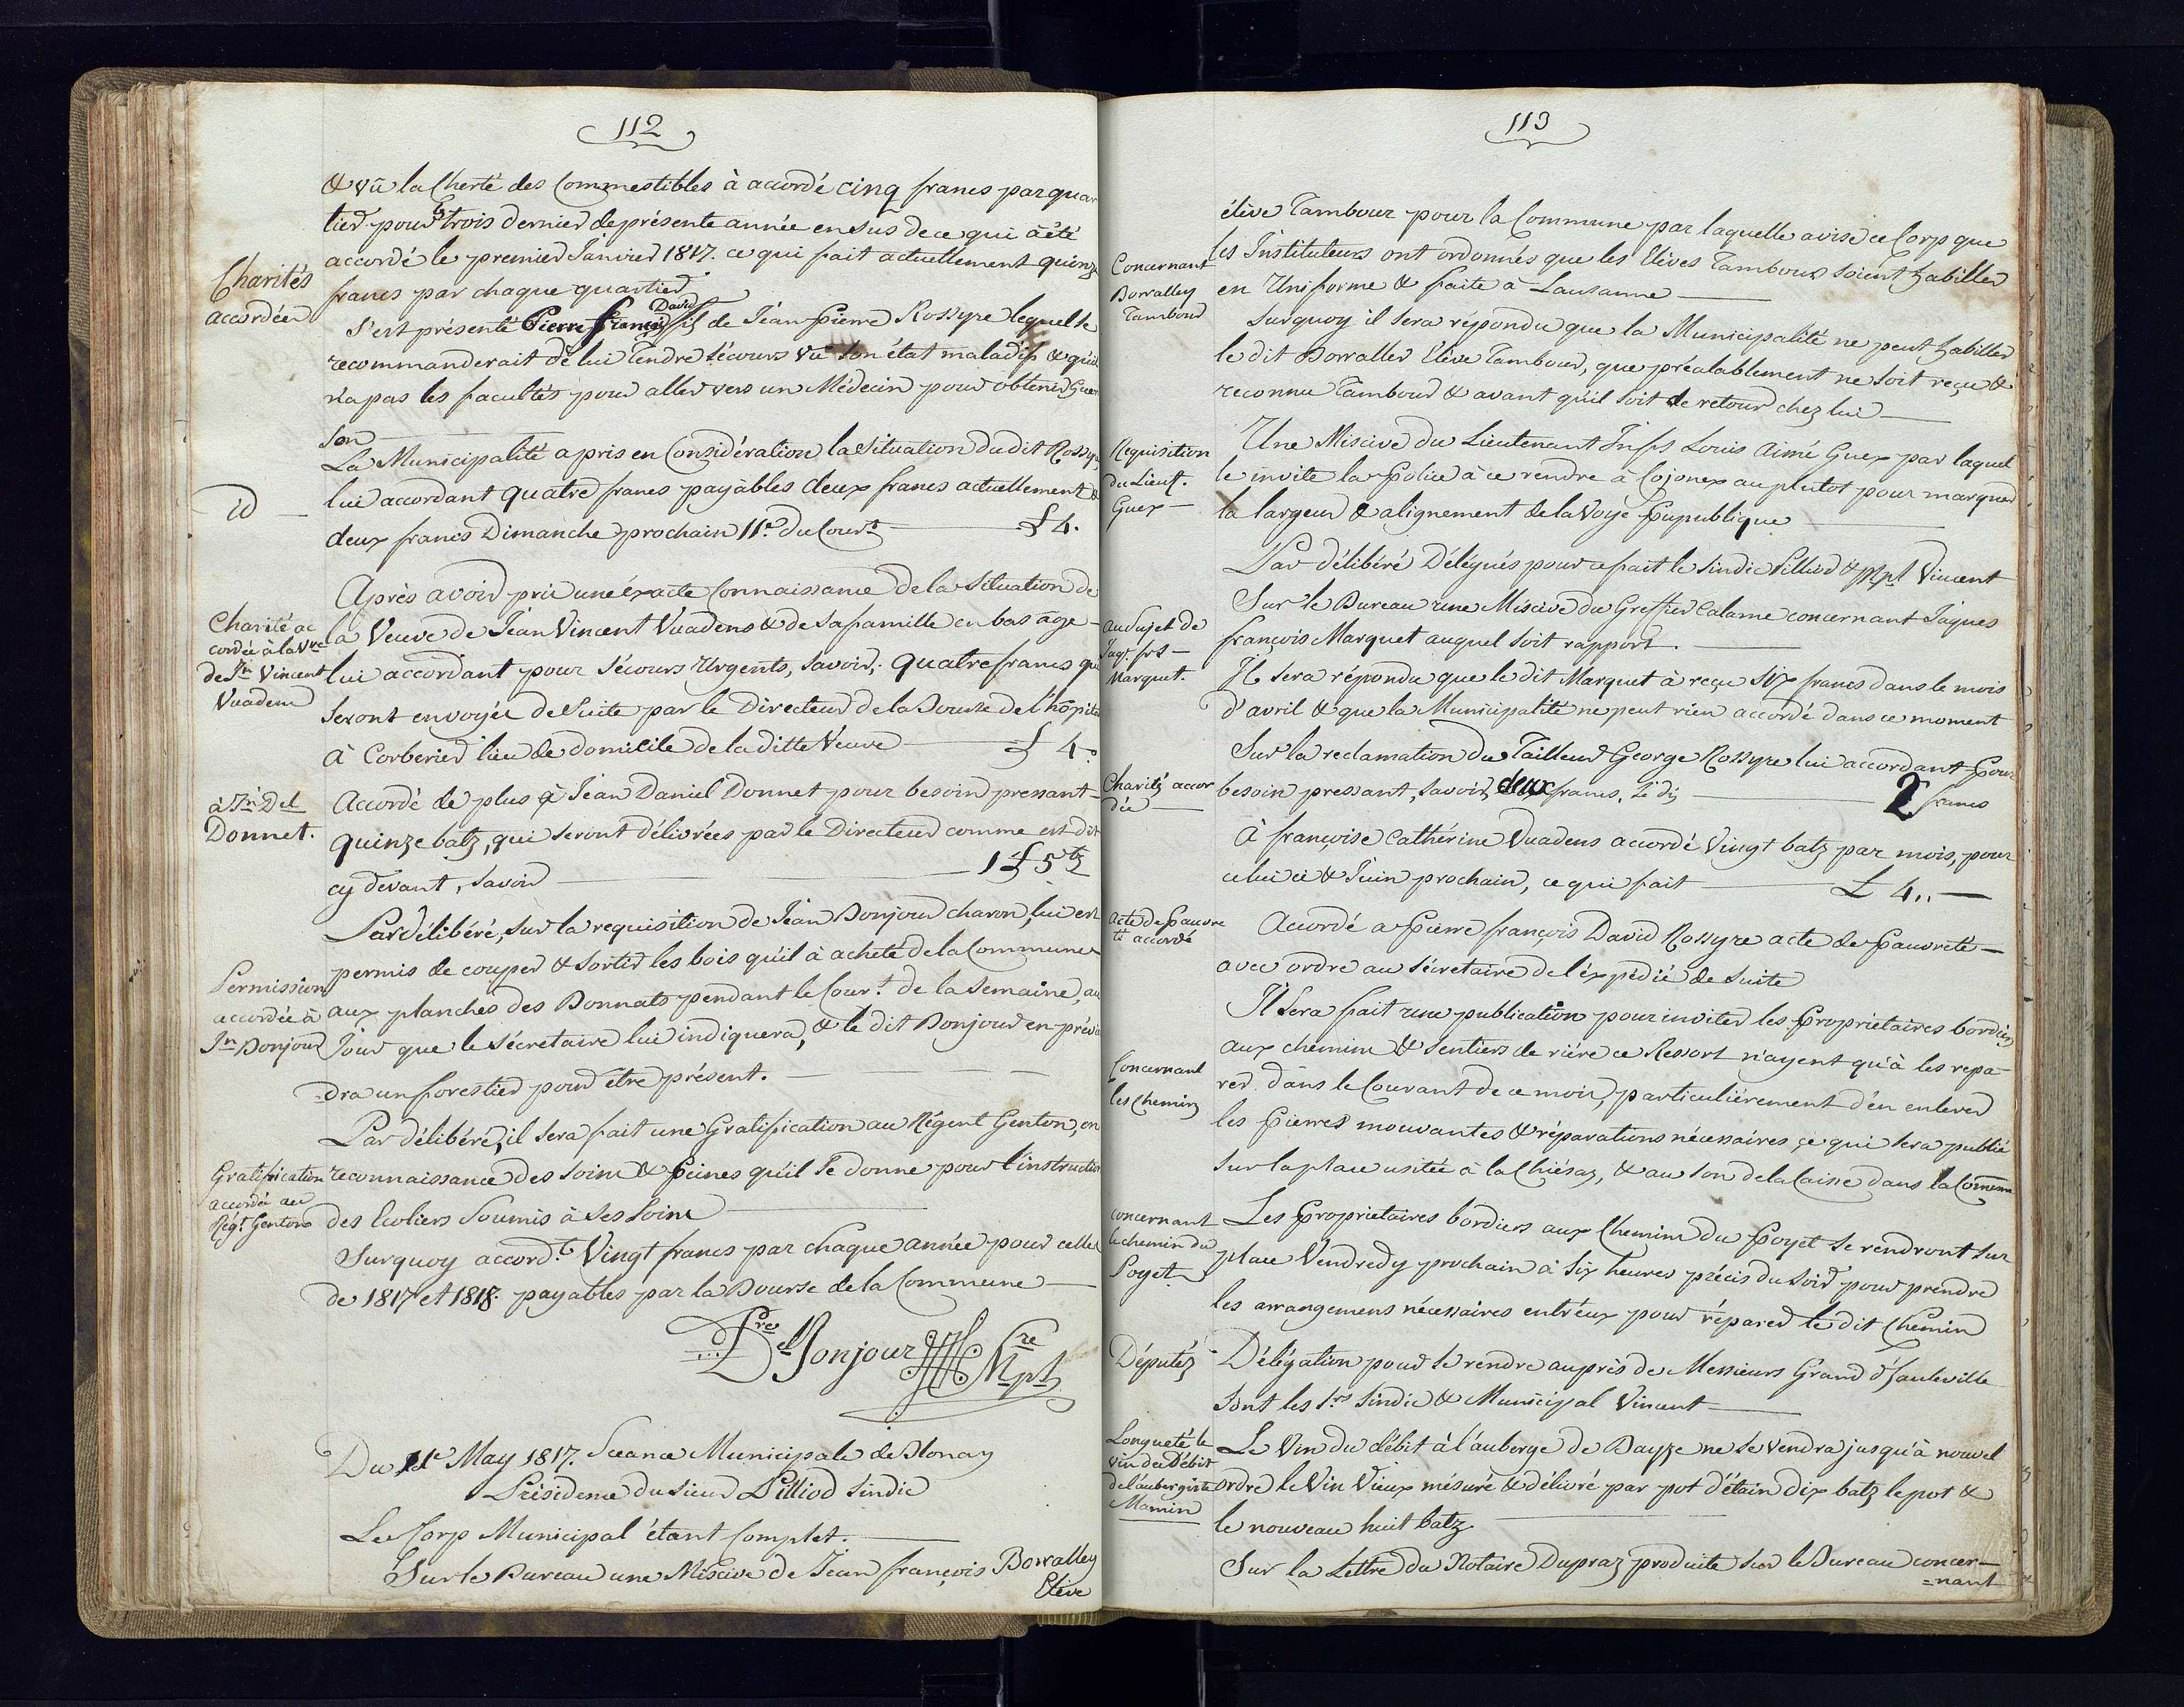 112
& vû la Cherté des Commestibles à accordé cinq francs par quar
tier pour les trois dernier de présente année en sus de ce qui à été
accordé le premier Janvier 1817. ce qui fait actuellement quinze
Charités
accordées
francs par chaque quartier
S'est présenté Pierre françois David fils de Jean Pierre Rossyre lequel se
recommanderait de lui Tendre sécours vû son état maladif & qu'il
n'a pas les facultés pour aller vers un Médecin pour obtenir Guer
son
La Municipalité a pris en Considération la situation du dit Rossyre
id
lui accordant quatre francs payâbles deux francs actuellement &
deux francs Dimanche prochain 11e. du Court. £ 4.
Après avoir pris une éxacte Connaissance de la situation de
Charité ac
cordée à la Vve
de Jn Vincent
Vuadens
la Veuve de Jean Vincent Vuadens & de sa famille en bas âge
lui accordant pour sécours Urgents, savoir; quatre francs qui
seront envoyés de suite par le Directeur de la Bourse de l'hôpital
à Corberier lieu de domicile de la ditte Veuve £ 4.
à Jn Del
Donnet.
Accordé de plus à Jean Daniel Donnet pour besoin pressant
quinze batz, qui seront délivrées par le Directeur comme est dit
cy devant, savoir 1 £ 5 bz
Par délibéré, sur la requisition de Jean Bonjour charon, lui est
permis de couper & sortir les bois qu'il à acheté de la Commune
Permission
accordée à
Jn Bonjour
aux planches des Bonnats pendant le Cour.t de la semaine, au
Jour que le sécretaire lui indiquera, & le dit Bonjour en préva
-dra un forestier pour être présent.
Par délibéré, il sera fait une Gratification au Régent Genton, en
Gratification
accordée au
Régt Genton
reconnaissance des soins & peines qu'il se donne pour l'instruction
des Ecoliers soumis à ses soins
Surquoy accord.t Vingt francs par chaque année pour celles
de 1817 et 1818. payables par la Bourse de la Commune
Del Bonjour Sre
Mpl
Du 11e May 1817. Sceance Municipale de Blonay
Présidence du sieur Pilliod sindic
Le Corp Municipal étant Complet.
Sur le Bureau une Miscive de Jean françois Borralley
Elève
113
élève Tambour pour la Commune par laquelle avise ce Corp que
Concernant
Borralley
Tambour
les Instituteurs ont ordonnés que les Elèves Tambours soient habiller
en Uniforme & faite à Lausanne
Surquoy il sera répondu que la Municipalité ne peut habiller
le dit Borraller Elève Tambour, que préalablement ne soit reçu &
reconnu Tambour & avant qu'il soit de retour chez lui
Requisition
du Lieut.
Guex
Une Miscive du Lieutenant Louis Aimé Guex par laquel
le invite la Police à ce rendre à Cojonex au plutot pour marquer
la largeur & alignement de la Voye Pupublique
Par délibéré Délégués pour ce fait le sindic Pilliod & Mpl Vincent
au Sujet de
Jaqs frs
Marquet.
Sur le Bureau une Miscive du Greffier Calame concernant Jaques
françois Marquet auquel soit rapport.
Il sera répondu que le dit Marquet à reçu six francs dans le mois
d'avril & que la Municipalité ne peut rien accordé dans ce moment
Sur la reclamation du Tailleur George Rossyre lui accordant pour
Charités accor
dée
besoin pressant, savoir, deux francs, 2 francs
À françoise Cathérine Vuadens accordé Vingt batz par mois, pour
celui ci & Juin prochain, ce qui fait £ 4..
Acte de Pauvre
té accordé
Accordé a Pierre françois David Rossyre acte de Pauvreté
avec ordre au sécretaire de l'éxpédié de suite
Il sera fait une publication pour inviter les Proprietaires bordiers
Concernant
les Chemins
aux chemins & sentiers de riére ce Ressort n'ayent qu'à les repa-
rer dans le Courant de ce mois, particulièrement d'en enlever
les Pierres mouvantes & réparations nécessaires ce qui sera publié
sur la place usitée à la Chiésaz, & au son de la Caisse dans la Commune
concernant
le chemin du
Poyet
Les Proprietaires bordiers aux Chemins du Poyet se rendront sur
place Vendredy prochain à six heures précis du soir pour prendre
les arrangemens nécessaires entr'eux pour réparer le dit Chemin
Députés
Délégation pour se rendre auprès de Messieurs Grand d'hauteville
sont les Srs Sindic & Municipal Vincent
Longueté le
vin du Débit
de l'aubergiste
Mamin
Le Vin du débit à l'auberge de Bayse ne se vendra jusqu'à nouvel
ordre le Vin Vieux mésuré & délivré par pot d'étain dix batz le pot &
le nouveau huit batz
Sur la Lettre du Notaire Dupraz produite sur le Bureau concer-
=nant